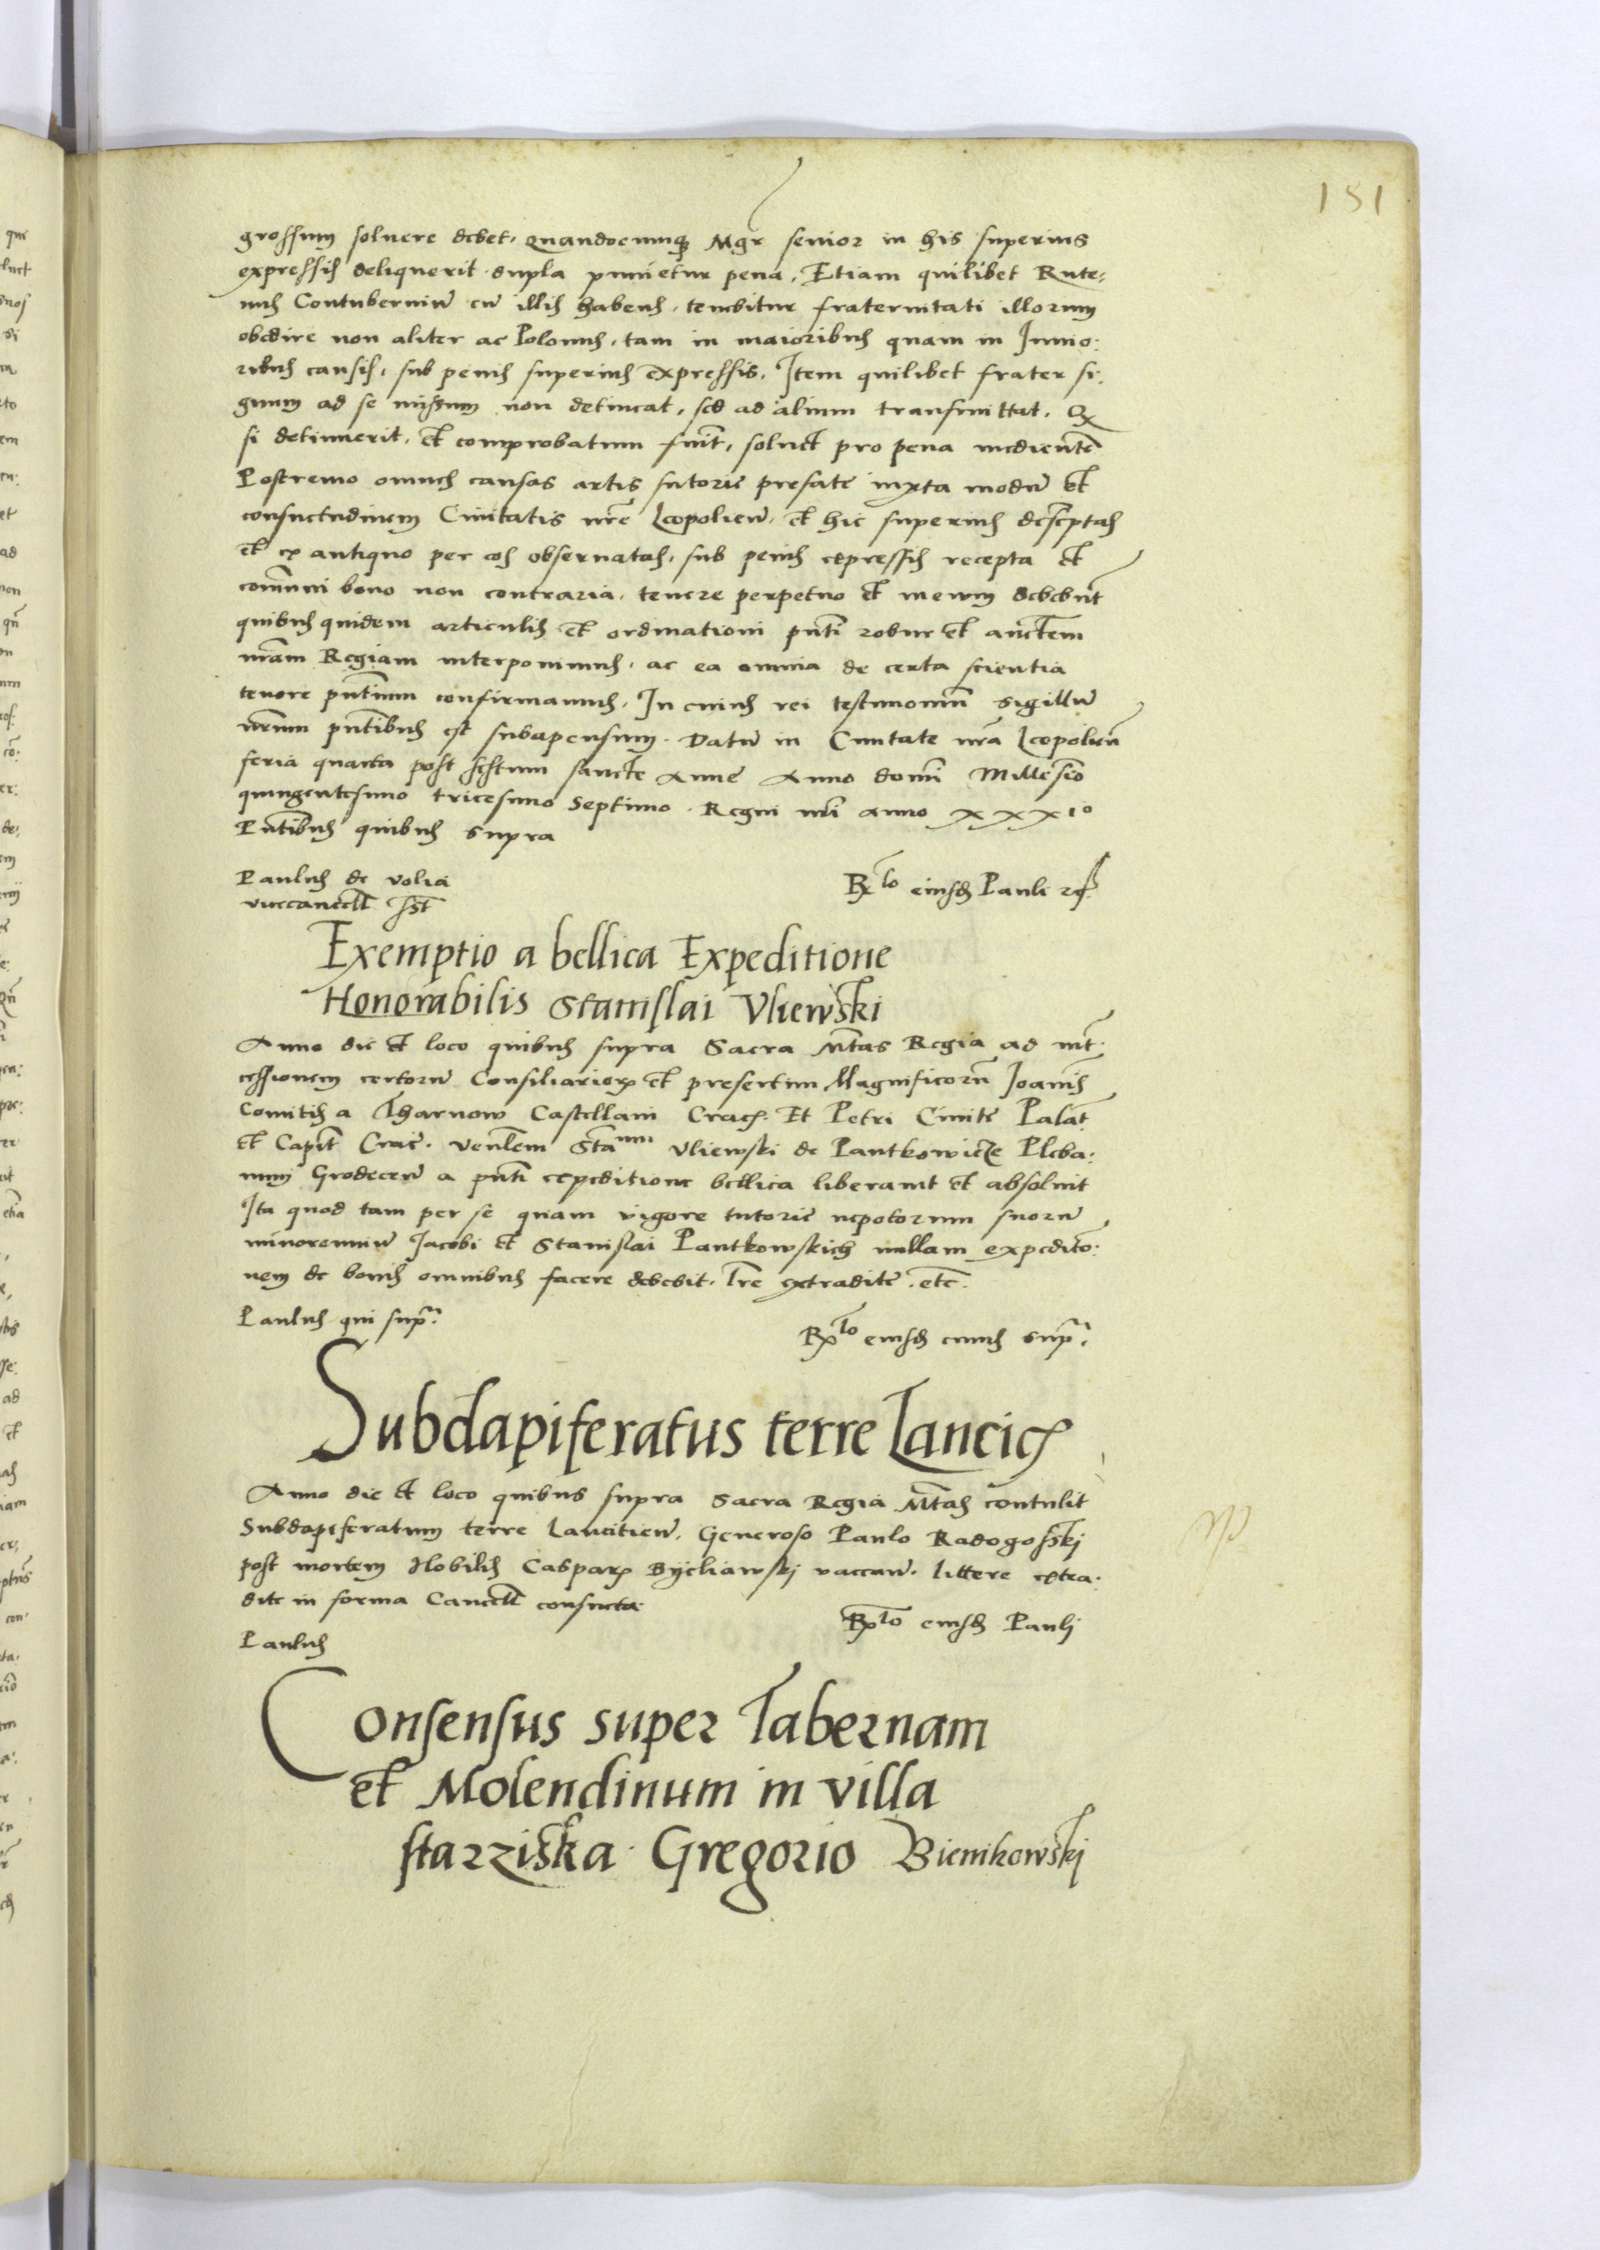 151
grossum soluere debet. Quandocunq; Mgr senior in his superius
expressis deliquerit dupla punietur pena. Etiam quilibet Rute:
nus Contuberniu cu illis habens. tenebitur fraternitati illorum
obedire non aliter ac Polonus. tam in maioribus quam in Iunio:
ribus causis. sub penis superius expressis. Item quilibet frater si
gnum ad se missum non detineat, sed ad alium transmittat. Q
si detinuerit. et comprobatum fuit, soluet pro pena
Postremo omnes causas artis sutorie prefate iuxta modu et
consuetudinem Ciuitatis nre Leopolien. et hic superius descptas
et ex antiquo per eos obseruatas. sub penis expressis recepta et
comuni bono non contraria. tenere perpetuo et in ewm debebut
quibus quidem articulis et ordinationi pnti robur et auctem
nram Regiam interponimus. ac ea omnia de certa scientia
tenore pntium confirmamus. In cuius rei testimoniu sigillu
nrum pntibus est subapensum. Datu in Ciuitate nra Leopolien
feria quarta post festum sancte Anne Anno domi Millesio
quingentesimo tricesimo Septimo. Regni nri anno XXXIo
Pntibus quibus supra
Paulus de volia
vicecancell sst
Rlo eiusd Pauli
Exemptio a bellica Expeditione
Honorabilis Stanislai Vliewski
Anno die et loco quibus supra Sacra Mtas Regia ad int
cessionem certoru Consiliarior et presertim Magnificoru Ioanis
Comitis a Tharnow Castellani Crac. Et Petri Cmite Palat
et Capit Crac. venlem Stanum Vliewski de Pantkowicze Pleba:
num Grodecen a pnti expeditione bellica liberauit et absoluit
Ita quod tam per se quam vigore tutorie nepotorum suoru
minorenniu Iacobi et Stanislai Pantkowskich nullam expedito:
nem de bonis omnibus facere debebit. lre extradite. etc.
Paulus qui supra
Rlo eiusd cuius supra
Subdapiferatus terre Lancic
Anno die et loco quibus supra Sacra Regia Mtas contulit
Subdapiferatum terre Lancitien. Generoso Paulo Radogosski
post mortem Nobilis Caspar Byeliawskj vaccan. littere extra:
dite in forma Cancell consueta
Rlo eiusd Paulj
Paulus
Consensus super Tabernam
et Molendinum in villa
starziska Gregorio Bienikowskj